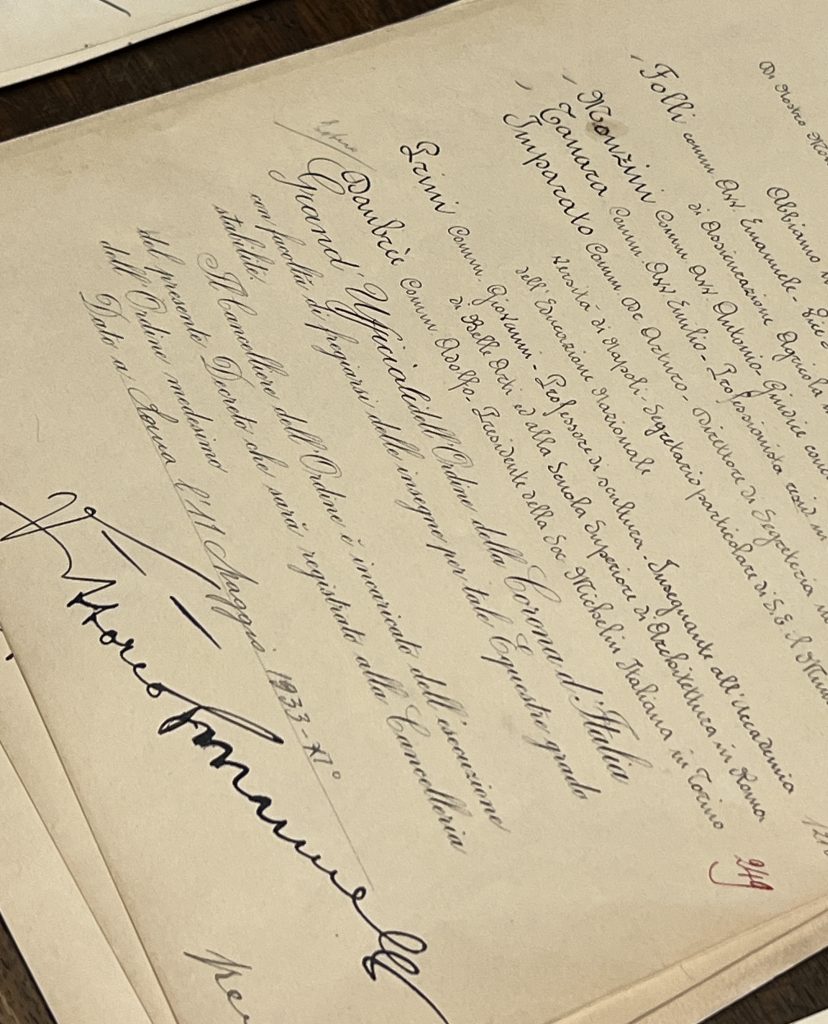 Di Nostro
Abbiamo
Folli Comm Avv. Emanuele -
di Assicurazione Agricola
Monzini Comm Avv. Antonio - Giudice
Tanara Comm. Avv Emilio - Professionista
Imparato Comm Dr Arturo - Direttore di Segreteria
versità di Napoli - Segretario particolare di S. E. il
dell'Educazione Nazionale
Prini Comm. Giovanni - Professore di scultura - Insegnante all'Accademia
di Belle Arti ed alla Scuola Superiore di Architettura in Roma
Daubrée Comm Adolfo - Presidente della Soc Michelin Italiana in Torino
Grand' Ufficiali dell'Ordine della Corona d'Italia
con facoltà di fregiarsi delle insegne per tale Equestre grado
stabilite.
Il Cancelliere dell'Ordine è incaricato dell'esecuzione
del presente Decreto che sarà registrato alla Cancelleria
dell'Ordine medesimo
Dato a Roma l'11 Maggio 1933-XI°
249
Vittorio Emanuele